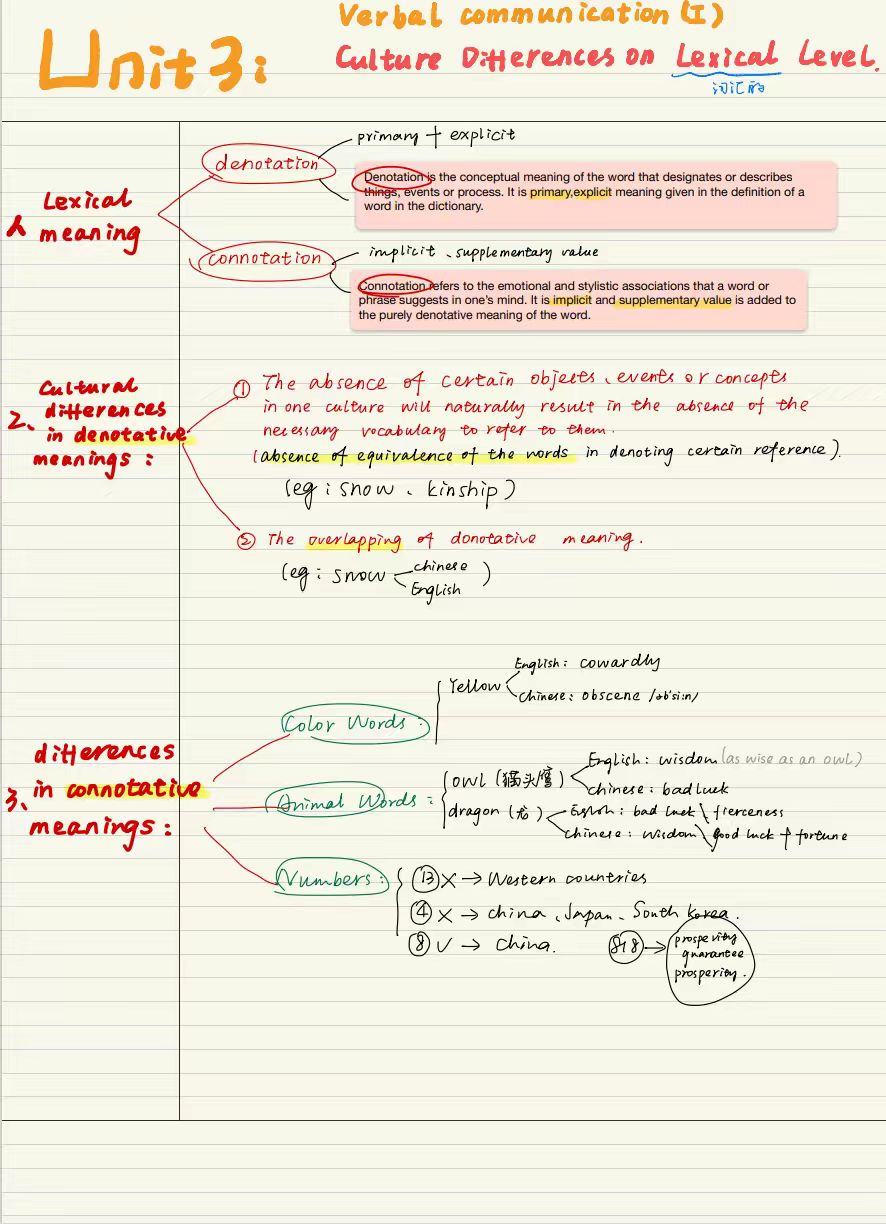 Verbal communication (I)
Unit 3:
Culture Differences on Lexical Level.
词汇的
1、Lexical
meaning
denotation
primary + explicit
Denotation is the conceptual meaning of the word that designates or describes
things, events or process. It is primary,explicit meaning given in the definition of a
word in the dictionary.
connotation
implicit、supplementary value
Connotation refers to the emotional and stylistic associations that a word or
phrase suggests in one's mind. It is implicit and supplementary value is added to
the purely denotative meaning of the word.
2、Cultural
differences
in denotative
meanings:
① The absence of certain objects、events or concepts
in one culture will naturally result in the absence of the
necessary vocabulary to refer to them.
(absence of equivalence of the words in denoting certain reference).
(eg: snow、kinship)
② The overlapping of donotative meaning.
(eg: snow
chinese
English
)
3、differences
in connotative
meanings:
Color Words:
Yellow
English: cowardly
Chinese: obscene /əb'si:n/
Animal Words:
owl (猫头鹰)
English: wisdom (as wise as an owl)
chinese: bad luck
dragon (龙)
English: bad luck \ fierceness
chinese: wisdom \ good luck + fortune
Numbers:
⑬ X → Western countries
④ X → china、Japan、South korea.
⑧ √ → China.
818 →
prosperity
guarantee
prosperity.